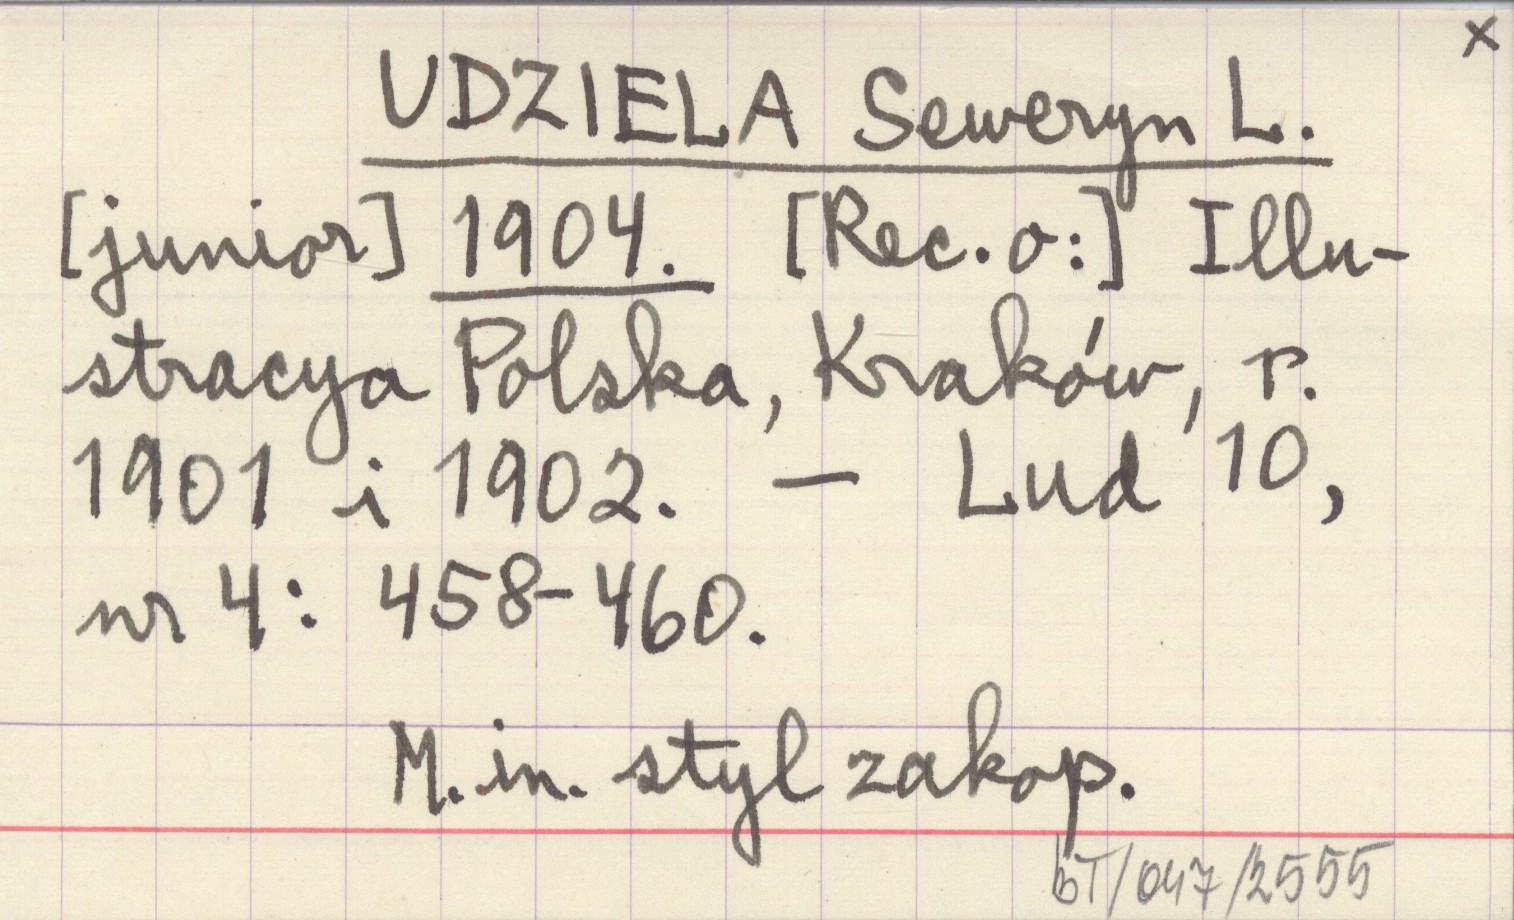 x
UDZIELA Seweryn L.
[junior] 1904. [Rec. o:] Illu-
stracya Polska, Kraków, r.
1901 i 1902. — Lud 10,
nr 4: 458-460.
M. in. styl zakop.
BT/047/2555